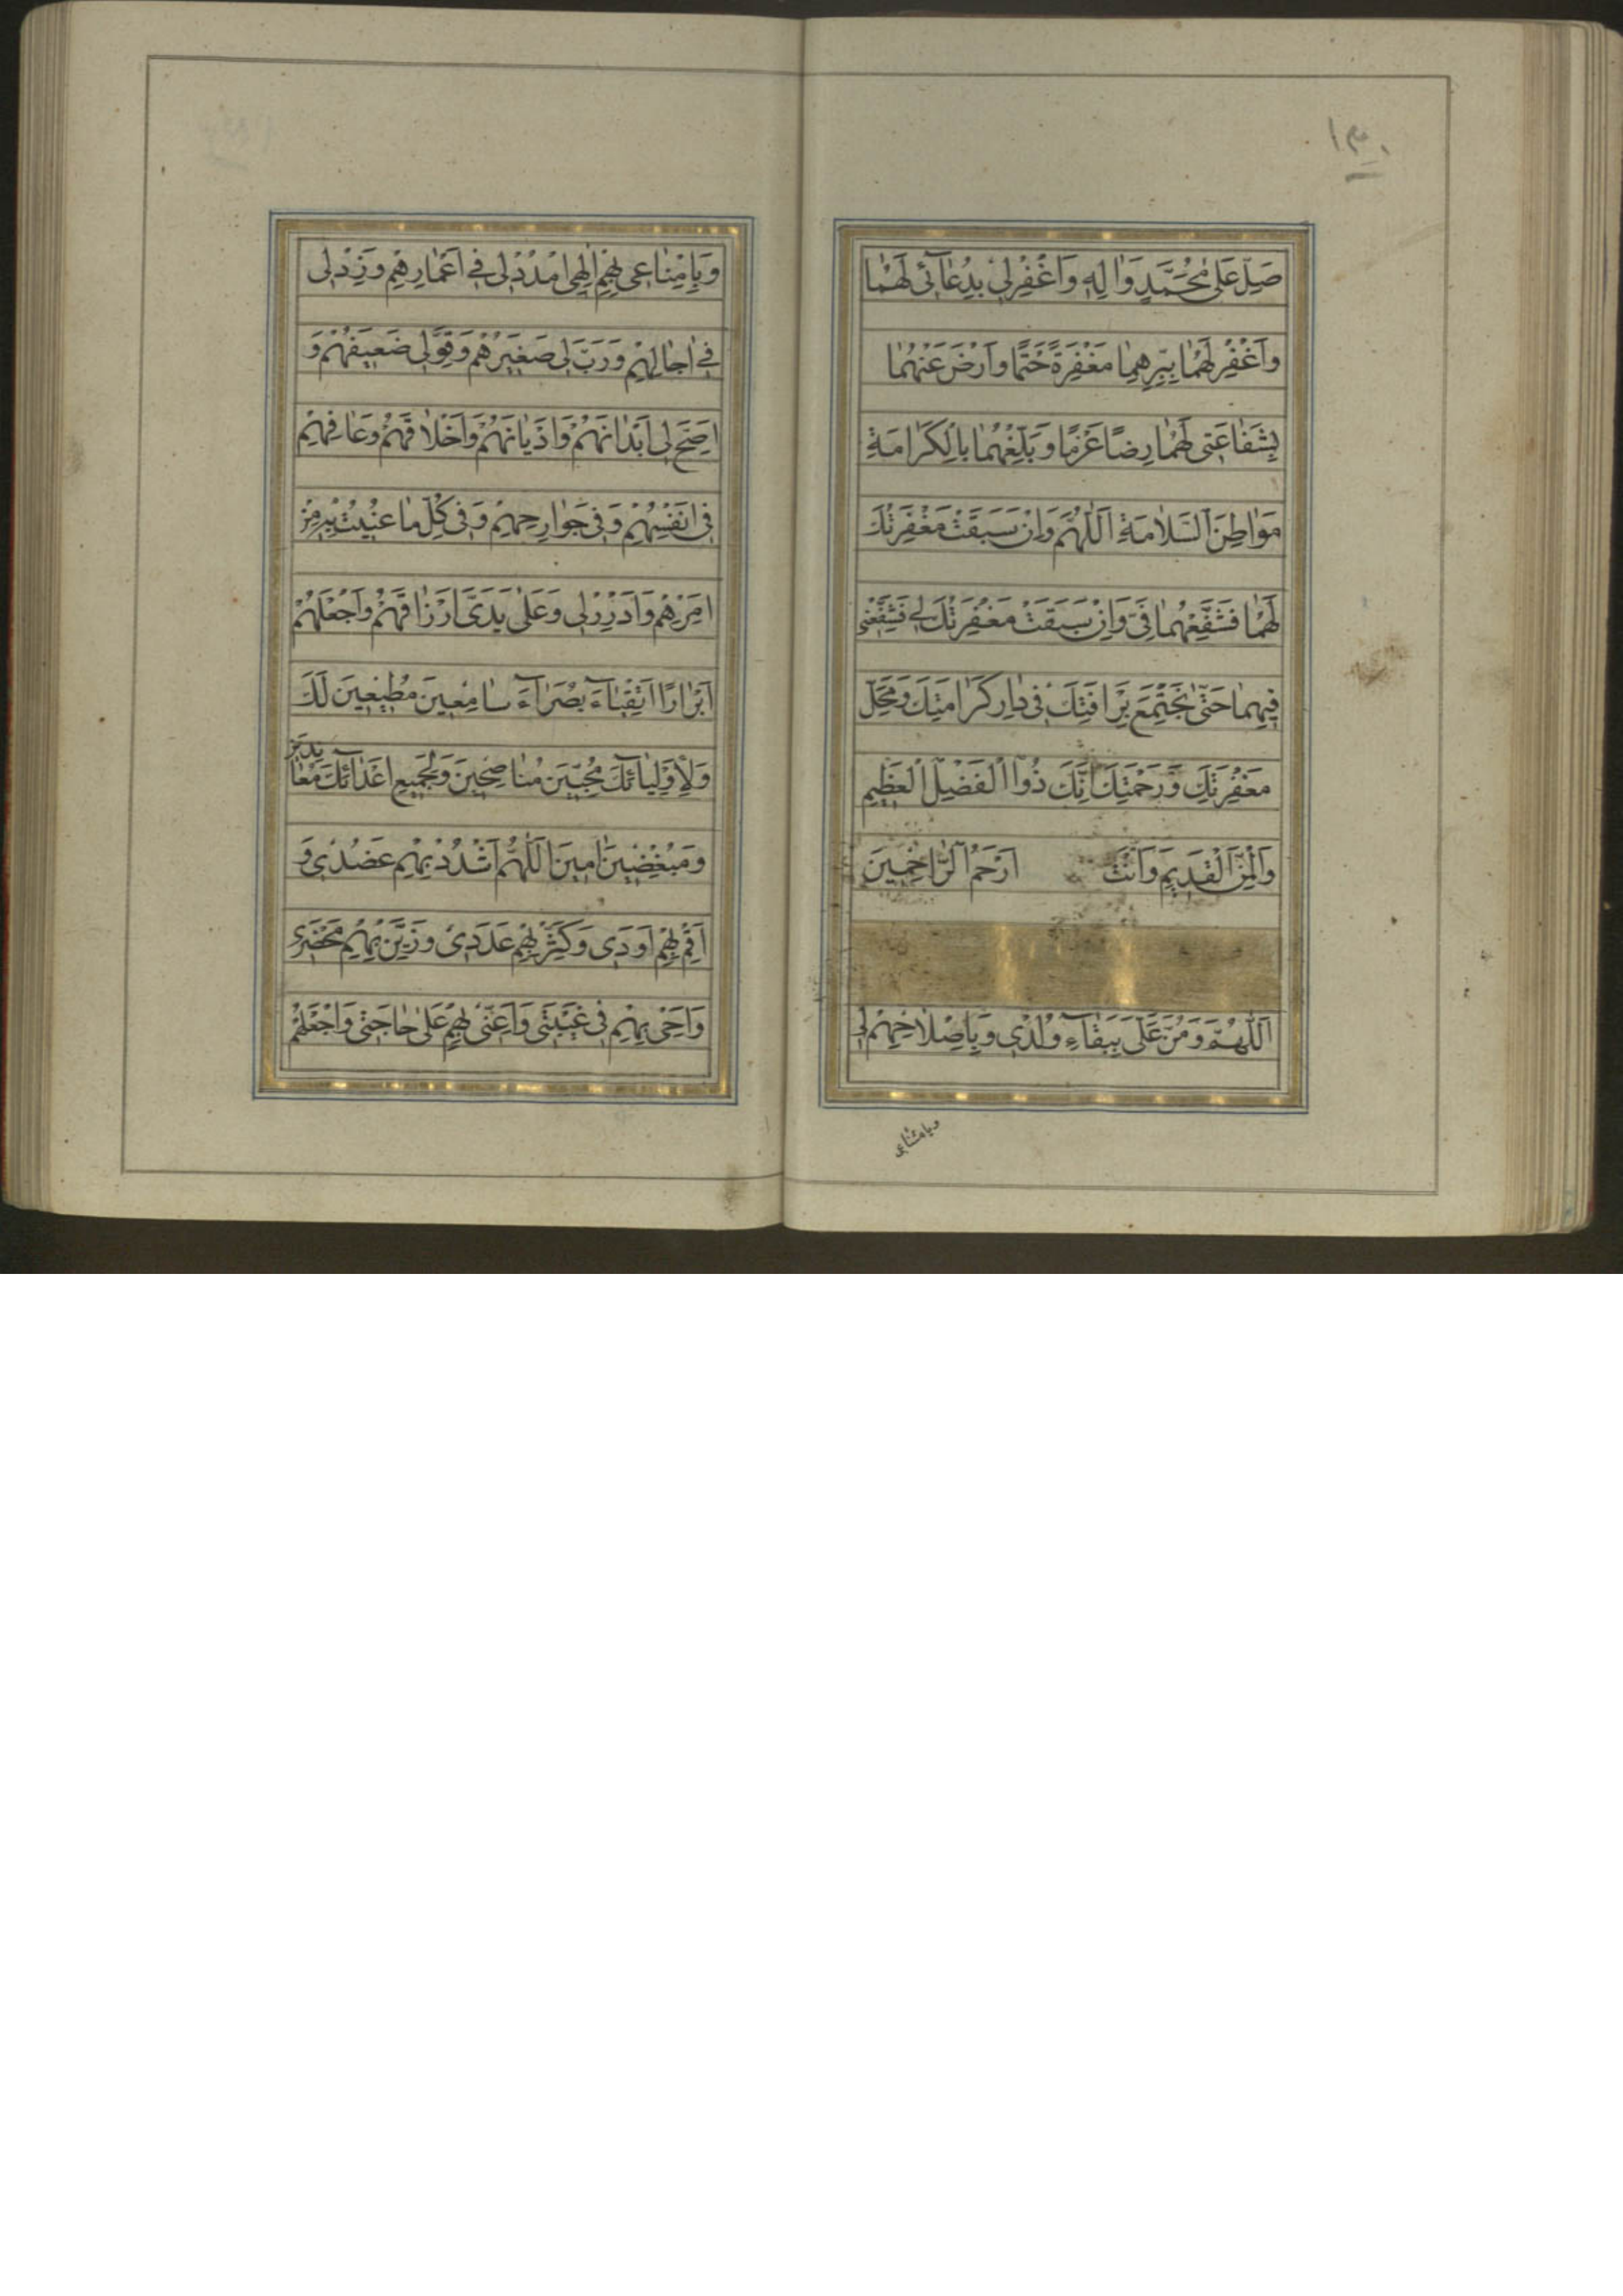 ١٣٠
صَلِّ عَلى مُحَمَّدٍ وَالِهِ وَاغْفِرْلى بِدُعآئى لَهُما
وَاغْفِرْ لَهُما بِبِرِّهِما مَغْفِرَةً حَتْمًا وَارْضَ عَنْهُما
بِشَفاعَتى لَهُما رِضًا عَزْمًا وَبَلِّغْهُما بِالْكَرامَةِ
مَواطِنَ السَّلامَةِ اَللّهُمَّ وَاِنْ سَبَقَتْ مَغْفِرَتُكَ
لَهُما فَشَفِّعْهُما فِىَّ وَاِنْ سَبَقَتْ مَغْفِرَتُكَ لى فَشَفِّعْنى
فيهِما حَتّى نَجْتَمِعَ بِرَافَتِكَ فى دارِ كَرامَتِكَ وَمَحَلِّ
مَغْفِرَتِكَ وَرَحْمَتِكَ اِنَّكَ ذُوا الْفَضْلِ الْعَظيمِ
وَالْمَنِّ الْقَديمِ وَاَنْتَ اَرْحَمُ الرّاحِمينَ
اَللّهُمَّ وَمُنَّ عَلَىَّ بِبَقآءِ وُلْدى وَبِاِصْلاحِهِمْ لى
وبامتاعى
وَبِاِمْتاعى بِهِمْ اِلهى امْدُدْ لى فى اَعْمارِهِمْ وَزِدْ لى
فى اجالِهِمْ وَرَبِّ لى صَغيرَهُمْ وَقَوِّ لى ضَعيفَهُمْ وَ
اَصِحَّ لى اَبْدانَهُمْ وَاَدْيانَهُمْ وَاَخْلاقَهُمْ وَعافِهِمْ
فى اَنْفُسِهِمْ وَفى جَوارِحِهِمْ وَفى كُلِّ ما عُنيتُ بِهِ مِنْ
اَمْرِهِمْ وَاَدْرِرْ لى وَعَلى يَدَىَّ اَرْزاقَهُمْ وَاجْعَلْهُمْ
اَبْرارًا اَتْقِياءَ بُصَراءَ سامِعينَ مُطيعينَ لَكَ
وَلِاَوْلِيائِكَ مُحِبّينَ مُناصِحينَ وَلِجَميعِ اَعْدائِكَ مُعانِدينَ
وَمُبْغِضينَ امينَ اَللّهُمَّ اشْدُدْ بِهِمْ عَضُدى وَ
اَقِمْ بِهِمْ اَوَدى وَكَثِّرْ بِهِمْ عَدَدى وَزَيِّنْ بِهِمْ مَحْضَرى
وَاَحْىِ بِهِمْ فى غَيْبَتى وَاَعِنّى بِهِمْ عَلى حاجَتى وَاجْعَلْهُمْ